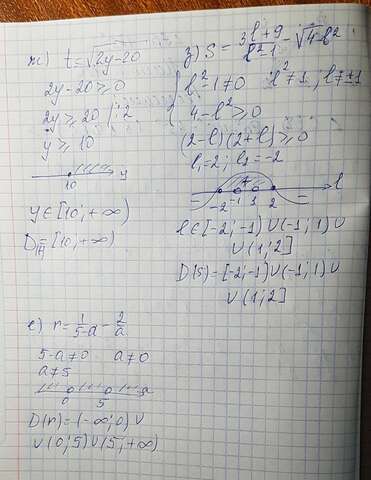 ж) t=√(2y-20)
2y-20≥0
2y≥20 |:2
y≥10
10 y
y∈[10;+∞)
D(t)=[10;+∞)
з) S=(3l+9)/(l²-1)-√(4-l²)
l²-1≠0 l²≠1; l≠±1
4-l²≥0
(2-l)(2+l)≥0
l₁=2; l₂=-2
- + -
-2 -1 1 2 l
l∈[-2;-1)∪(-1;1)∪
∪(1;2]
D(S)=[-2;-1)∪(-1;1)∪
∪(1;2]
е) r=1/(5-a)-2/a
5-a≠0 a≠0
a≠5
0 5 a
D(r)=(-∞;0)∪
∪(0;5)∪(5;+∞)